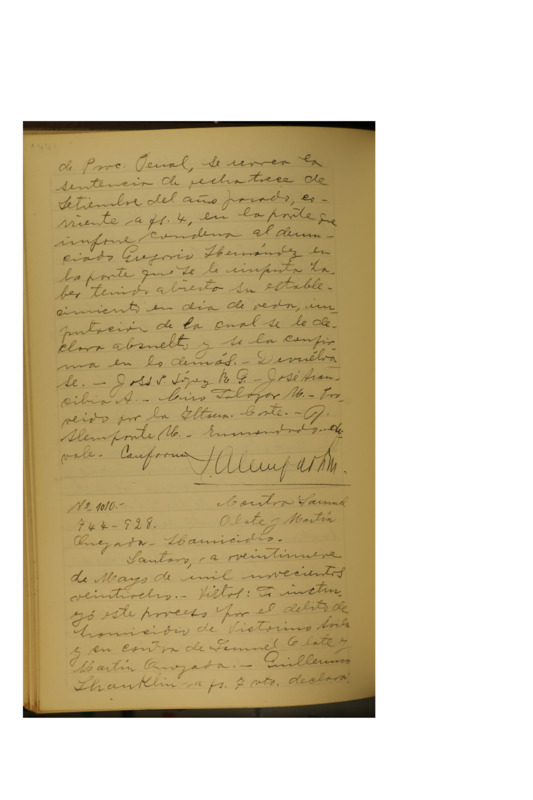 de Proc. Penal, se revoca la
sentencia de fecha trece de
Setiembre del año pasado, es-
a fs. 4, en la parte que
impone condena al denun-
ciado Gregorio Hernández en
la parte que se le imputa ha-
ber tenido abierto su estable-
cimiento en día de veda, im-
putación de la cual se le de-
clara absuelto y se la confir
ma en lo demás. - Devuélva
se. - José S. López M. G. - José Aran-
cibia A. - Ciro Salazar M. - Pro-
veido por la Iltma. Corte. - J.
Alemparte M. - Enmendado
vale. Conforme
J. Alemparte M.
Nº 1010.-
Contra Samuel
744-928.
Olate y Martín
Quezada - Homicidio.
Santiago, a veintinueve
de Mayo de mil novecientos
veintiocho. - Vistos: Se instru-
yó este proceso por el delito de
homicidio de Victorino
y en contra de Samuel Olate y
Martín Quezada. - Guillermo
a fs. 7 vta. declara: